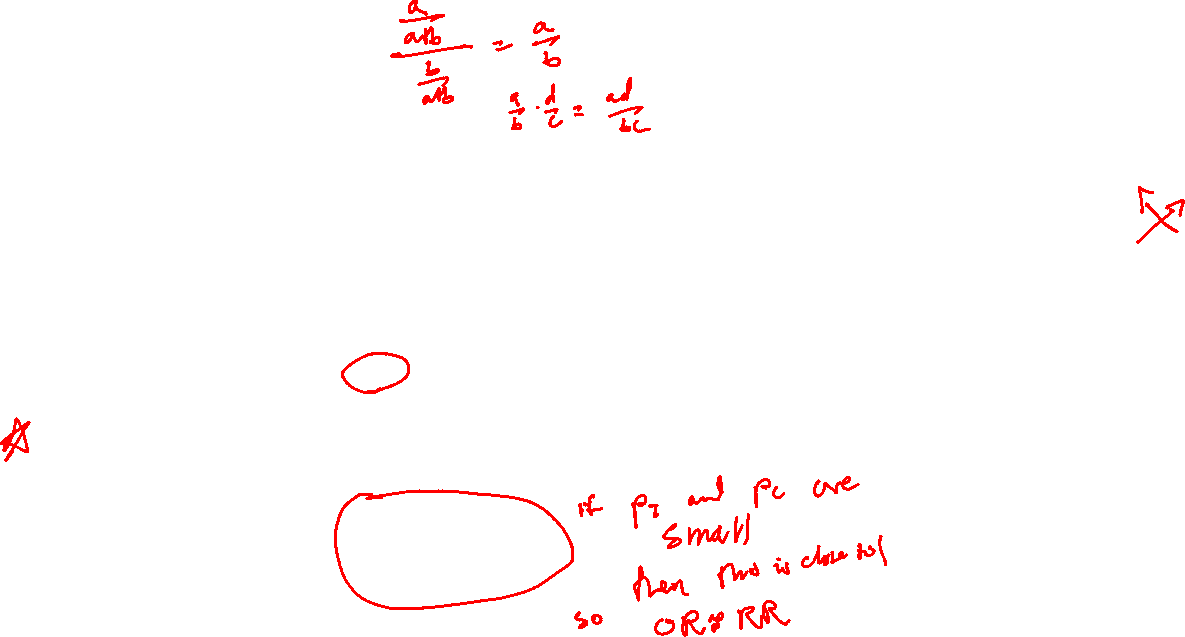 a/(a+b) / b/(a+b) = a/b
a/b · d/c = ad/bc
if PT and PC are
small
then this is close to 1
so OR≈RR